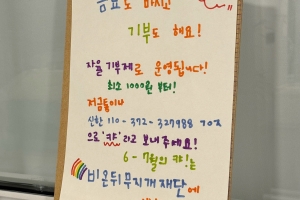 음료도 마시고
기부도 해요!
자율 기부제로 운영됩니다!
최소 1000원 부터!
저금통이나
신한 110-372-327988
으로 '캬' 라고 보내주세요!
6-7월의 캬!는
비온뒤무지개재단에